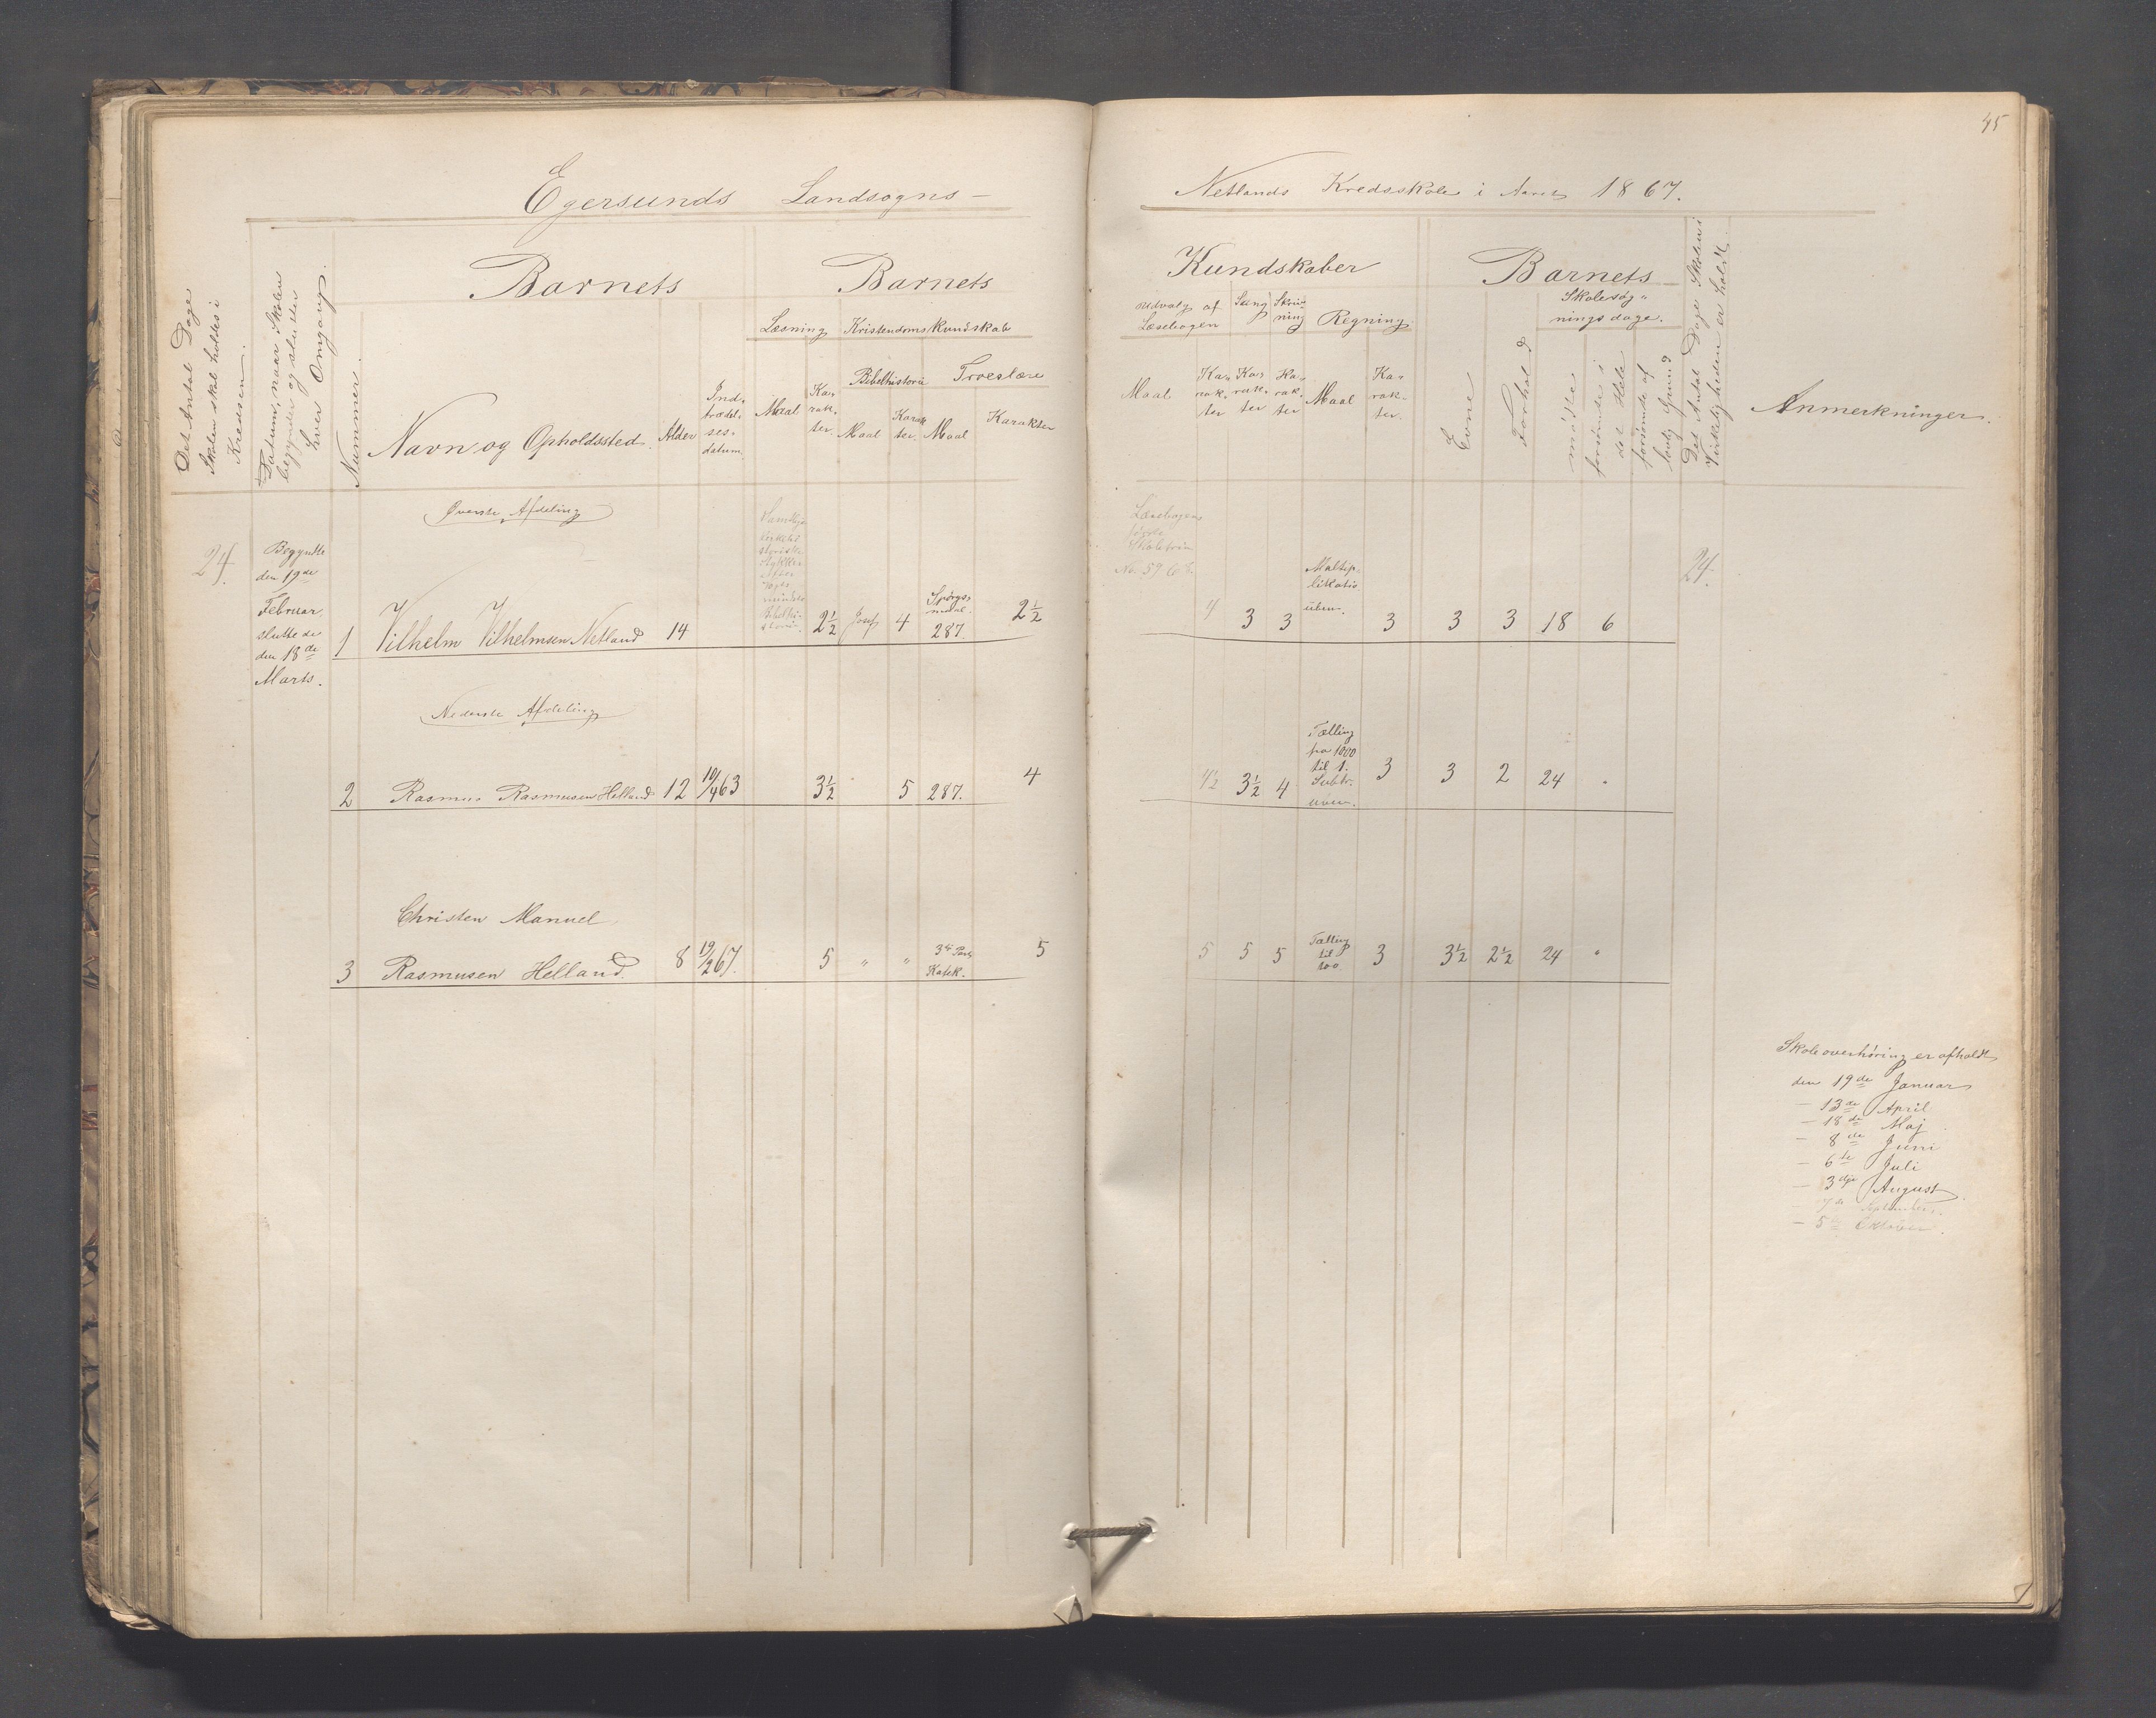 45
Egersunds Landsogns –
Netlands Kredsskole i Aaret 1867.
Det Antal Dage
Skolen skal holdes i
Kredsen.
Datum, naar Skolen
begynder og slutter
hver Omgang.
Nummer.
Barnets
Navn og Opholdssted.
Alder
Ind-
trædel-
ses-
datum.
Barnets
Læsning
Kristendomskundskab
Maal
Ka-
rak-
ter.
Bibelhistorie
Troeslære
Maal
Karak
ter.
Maal
Karakter
Kundskaber
Udvalg af
Læsebogen
Sang
Skriv-
ning
Regning.
Maal
Ka-
rak-
ter
Ka-
rak-
ter
Ka-
rak-
ter
Maal
Ka-
rak-
ter.
Barnets
Evne
Forhold
Skolesøg-
ningsdage.
mødte
forsømte i
det Hele
forsømte af
lovlig Grund
Det Antal Dage Skolen i
Virkeligheden er holdt.
Anmerkninger.
Øverste Afdeling
24.
Begyndte
den 19de
Februar,
sluttede
den 18de
Marts.
1 Vilhelm Vilhelmsen Netland 14
2½ Josef 4
Spørgs-
maal.
287.
2½
Læsebogens
første
Skoletrin
No 59
4 3 3
Multip-
likation
üben.
3 3 3 18 6
24.
Nederste Afdeling
2 Rasmus Rasmusen Helland 12 10/4 63 3½ 5 287. 4
4½ 3½ 4
Tælling
fra 1000
til 1.
Subtr.
üben.
3 3 2 24 "
Christen Manuel
3 Rasmusen Helland. 8 19/2 67. 5 " "
3die Part
Katek.
5
5 5 5
Tælling
til
100
3 3½ 2½ 24 "
Skoleoverhøring er afholdt
den 19de Januar
– 13de April
– 18de Maj
– 8de Juni
– 6te Juli
– 3dje August
– 7de September.
– 5te Oktober.